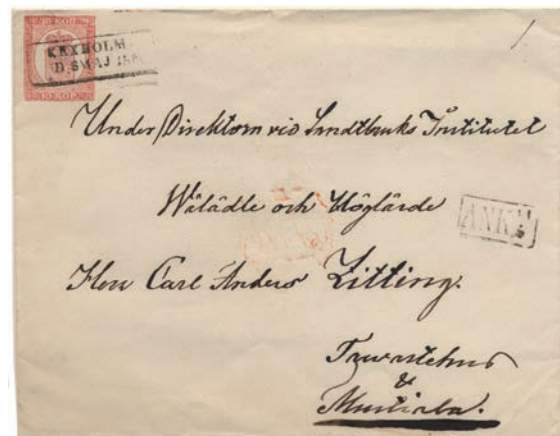 10 KOP.
KEXHOLM
D. 8 MAJ 18
10 KOP.
Under Direktorn vid Landtbruks Institutet
Wälädle och Höglärde
ANK
Herr Carl Anders Zitting.
Tavastehus
&
Mustiala.